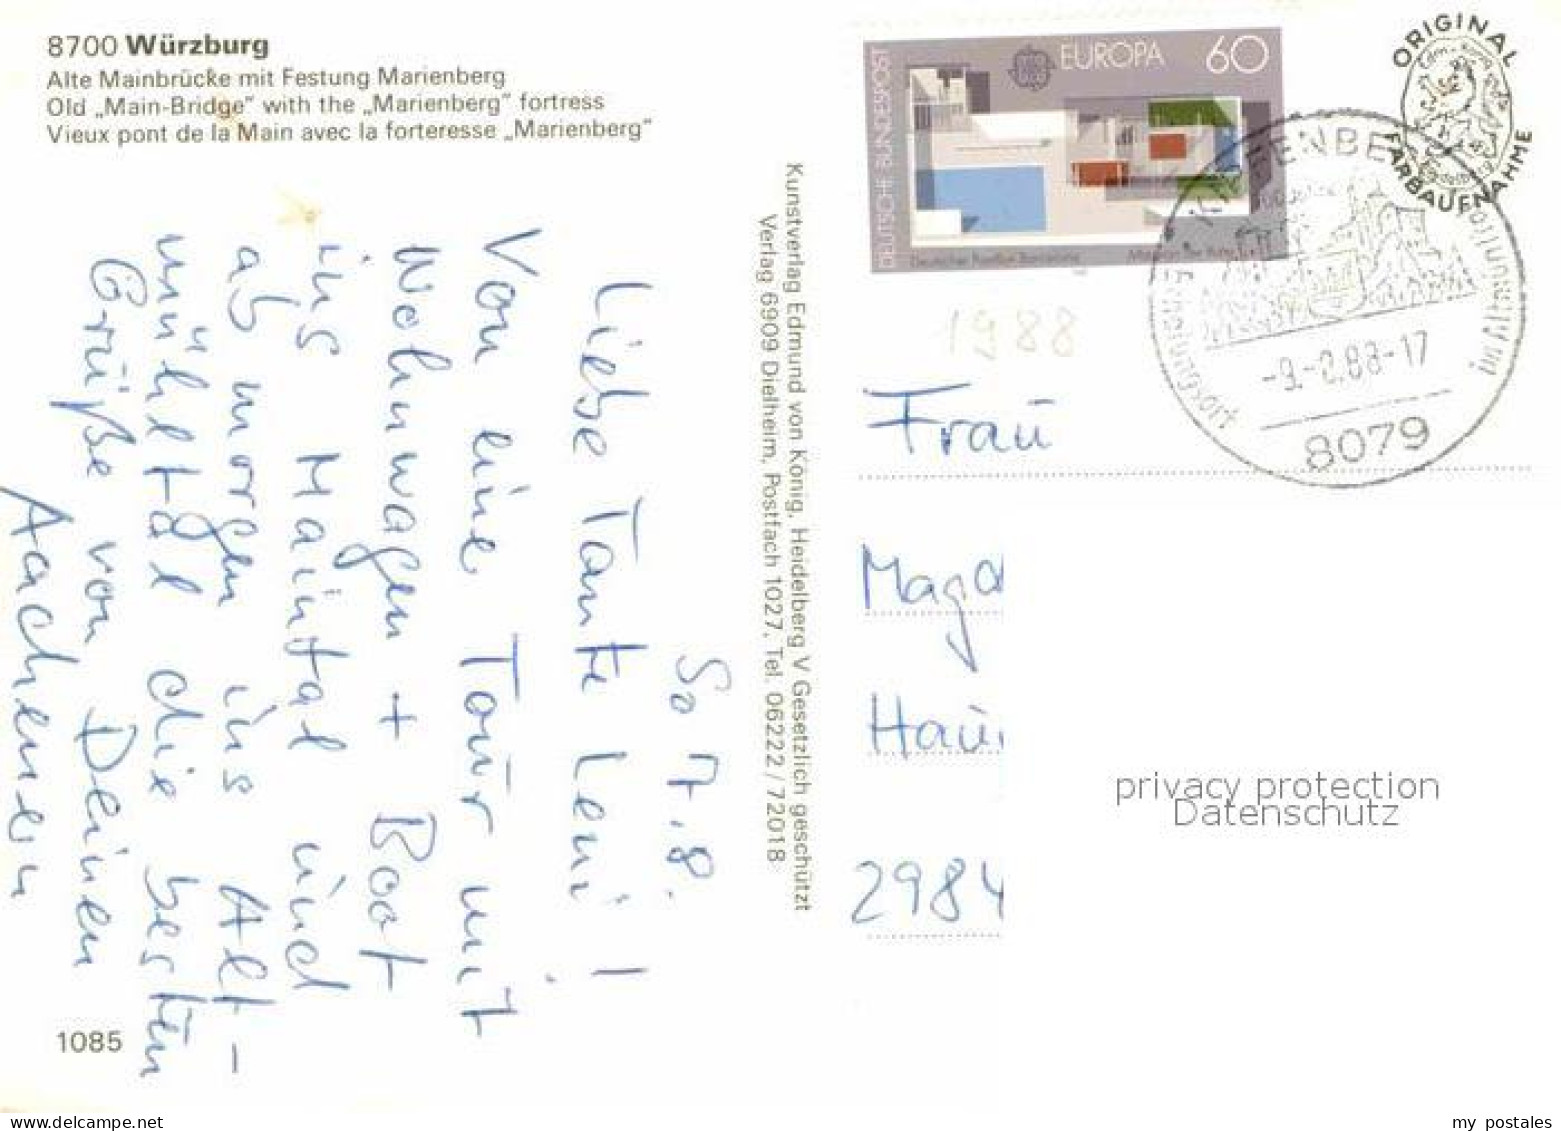 8700 Würzburg
Alte Mainbrücke mit Festung Marienberg
Old „Main-Bridge" with the „Marienberg" fortress
Vieux pont de la Main avec la forteresse „Marienberg"
So 7.8.
Liebe Tante Leni!
Von eine Tour mit
Wohnwagen + Boot
ins Maintal und
ab morgen ins Alt-
mühltal die besten
Grüße von Deinen
Aachenern
1085
Kunstverlag Edmund von König, Heidelberg V Gesetzlich geschützt
Verlag 6909 Dielheim, Postfach 1027, Tel. 06222/72018
DEUTSCHE BUNDESPOST
EUROPA 60
Deutscher Pavillon Barcelona
ORIGINAL
FARBAUFNAHME
-9.-2.88-17
8079
1988
Frau
Magd
Haun
2984
privacy protection
Datenschutz
my postales